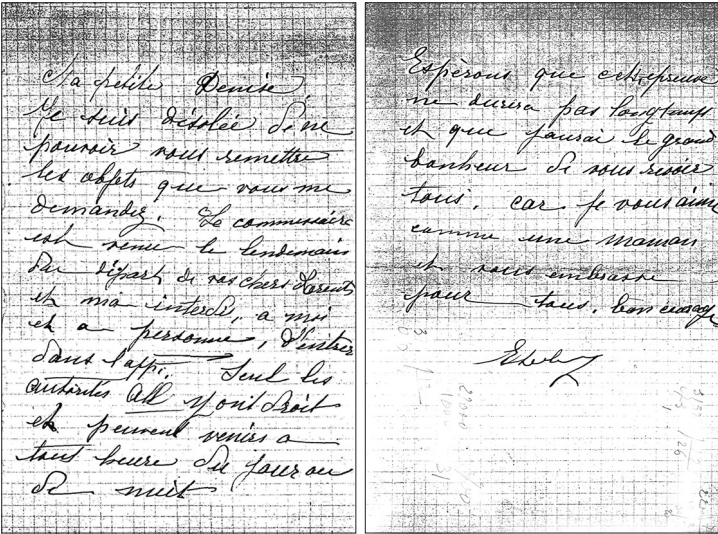 Ma petite Denise,
Je suis désolée de ne
pouvoir vous remettre
les objets que vous me
demandez. Le commissaire
est venu le lendemain
du départ de vos chers Parents
et m'a interdit, a moi
et a personne, d'entrer
dans l'appt. Seul les
autorités All y ont droit
et peuvent venirs a
tout heure du jour ou
de nuit
Espérons que cette epreuve
ne durera pas longtemps
et que j'aurai le grand
bonheur de vous revoir
tous. car je vous aime
comme une maman
et vous embrasse
pour tous. bon courage